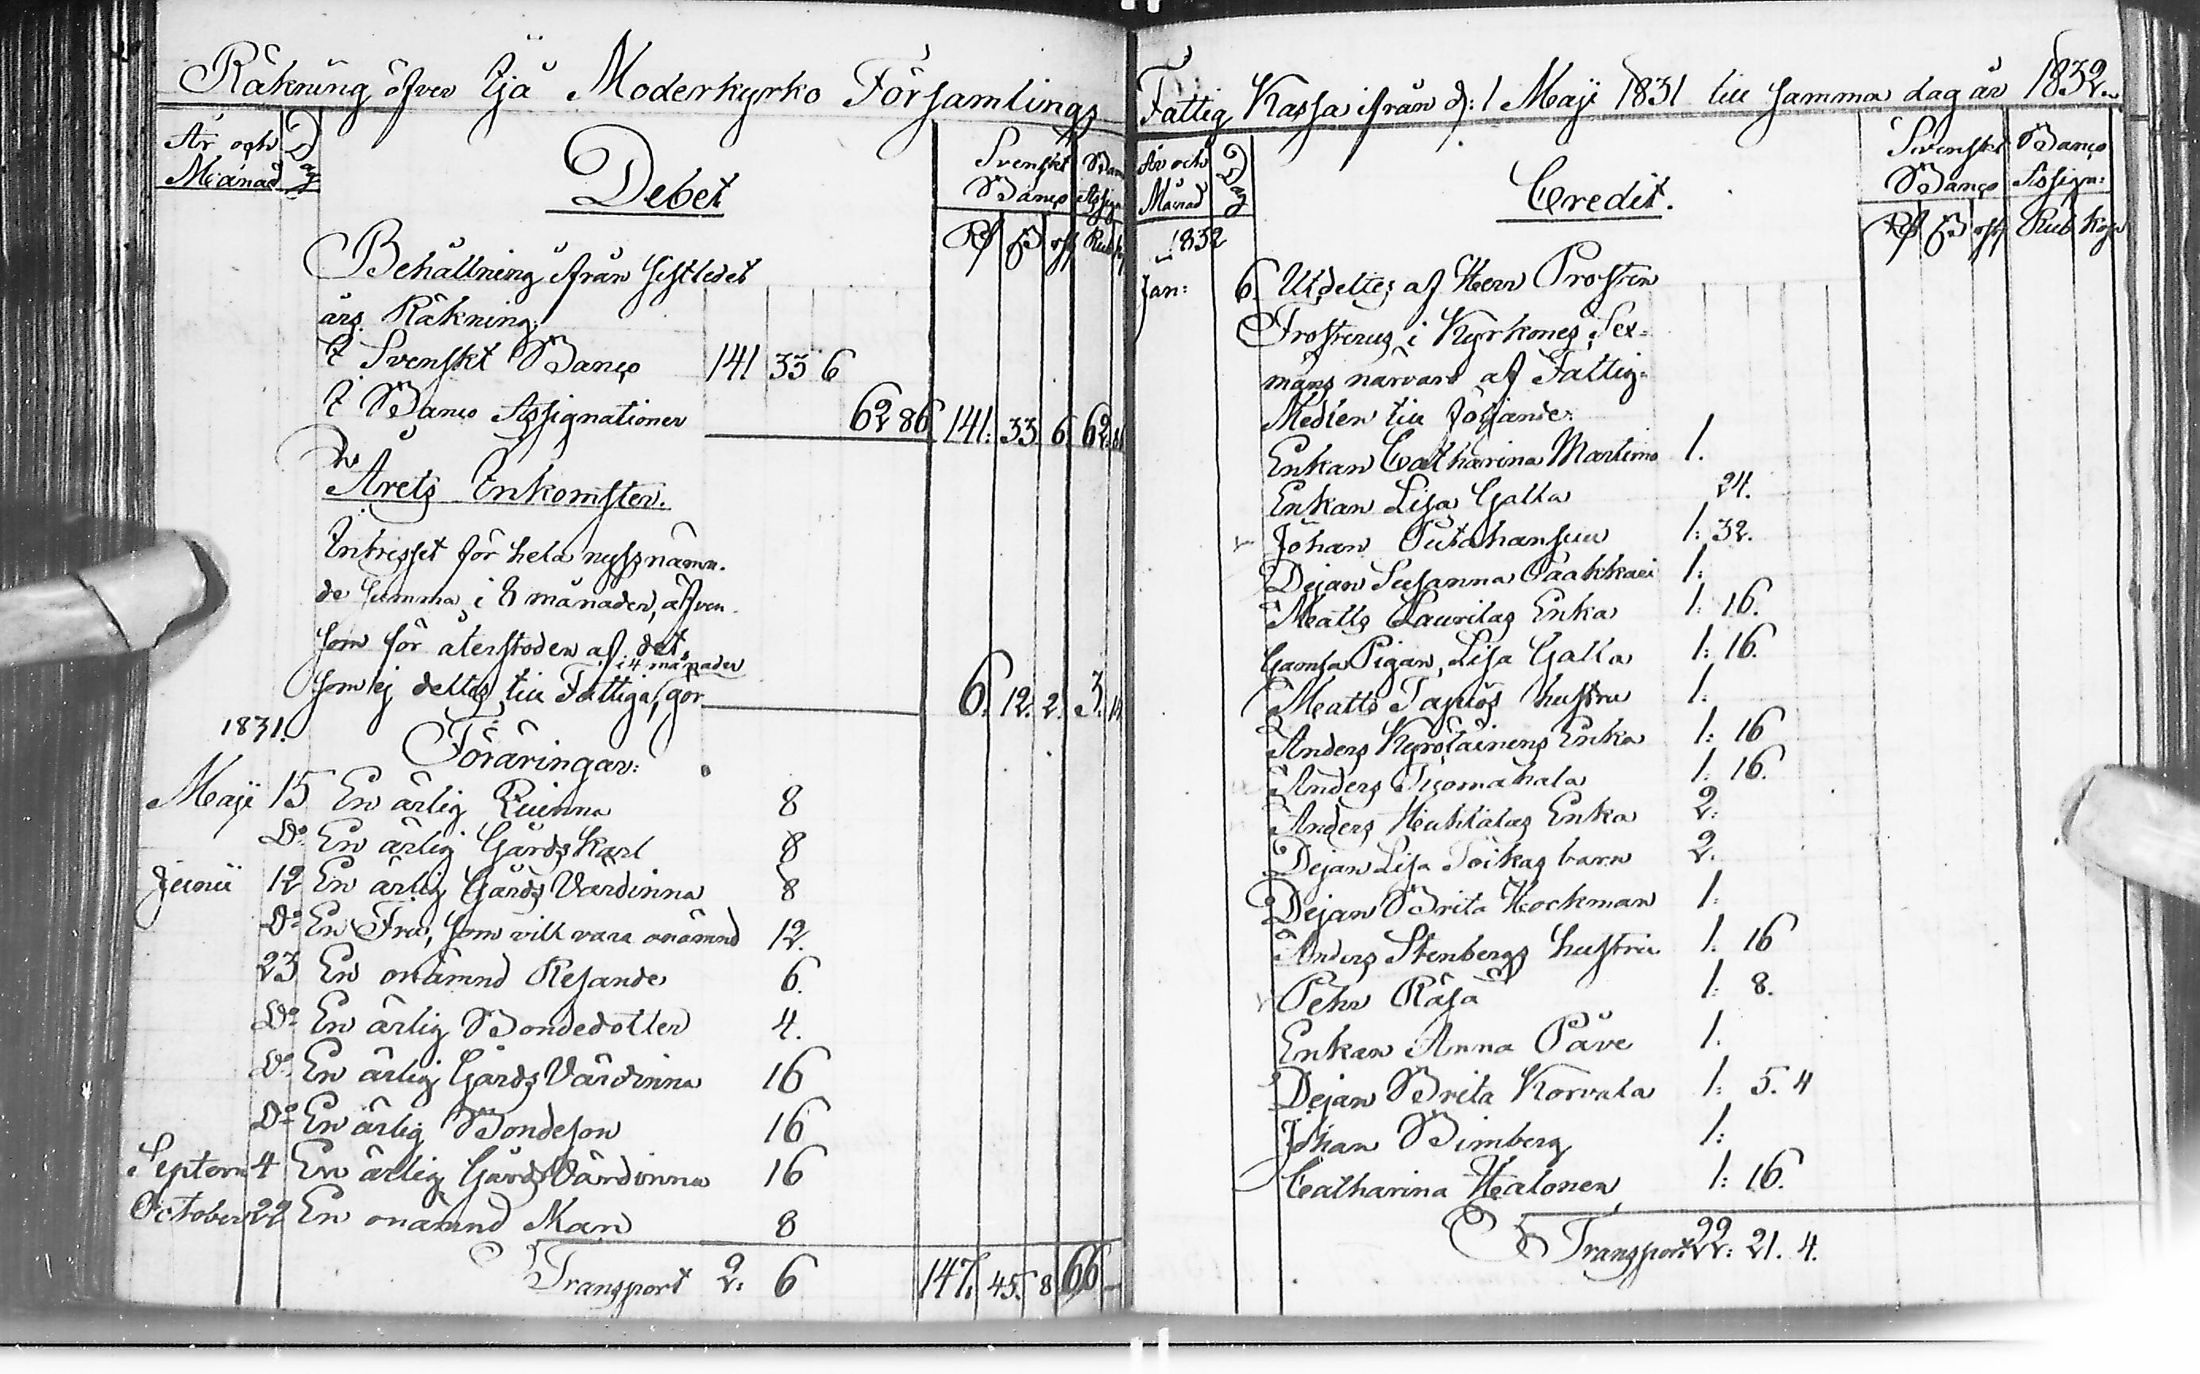 Räkning öfver Ijå Moderkyrko Församlings
År och
Månad
Dag
Debet
Svenskt
Banco
Banco
Assign
Rd ß rst Rub kop
Behållning ifrån sistledet
års Räkning.
I Svenskt Banco 141 33 6
I Banco Assignationer 62 86 141: 33 6 62. 86
Årets Inkomster.
Intresset för hela nyssnämn-
de summa i 8 månader, äfven
som för återstoden af det,
i 4 månader
som ej deltes till Fattiga, gör 6. 12. 2. 3. 14
1831.
Föräringar:
Maji 15 En ärlig Quinna 8
Do En ärlig Gårds Karl 8
Junii 12 En ärlig Gårds Värdinna 8
Do En Fru, som vill vara onämnd 12.
23 En onämnd Resande 6.
Do En ärlig Bondedotter 4.
Do En ärlig Gårds Värdinna 16
Do En ärlig Bondeson 16
Septem 4 En ärlig Gårds Värdinna 16
October 22 En onämnd Man 8
Transport 2: 6 147. 45. 8 66 —
Fattig Kassa ifrån d: 1 Maji 1831 till samma dag år 1832.
År och
Månad
Dag
Credit.
Svenskt
Banco
Banco
Assign:
Rd ß rst Rub Kop
1832
Jan: 6. Utdeltes af Herr Prosten
Frosterus i Kyrkones Sex-
mäns närvaro af Fattig-
Medlen till följande:
Enkan Catharina Martimo 1.
Enkan Lisa Galla 24.
Johan Outahansuu 1: 32.
Dejan Susanna Paakkari 1:
Matts Lauritas Enka 1: 16.
Gamla Pigan, Lisa Galla 1: 16.
Matts Tapios hustru 1:
Anders Kyröläinens Enka 1: 16
Anders Tuomahala 1: 16.
Anders Huhtalas Enka 2:
Dejan Lisa Toikas barn 2.
Dejan Brita Hockman 1:
Anders Stenbergs hustru 1: 16
Pehr Räsä 1: 8.
Enkan Anna Pave 1.
Dejan Brita Korvala 1: 5. 4
Johan Bimberg 1:
Catharina Halonen 1: 16.
Transport 22: 21. 4.